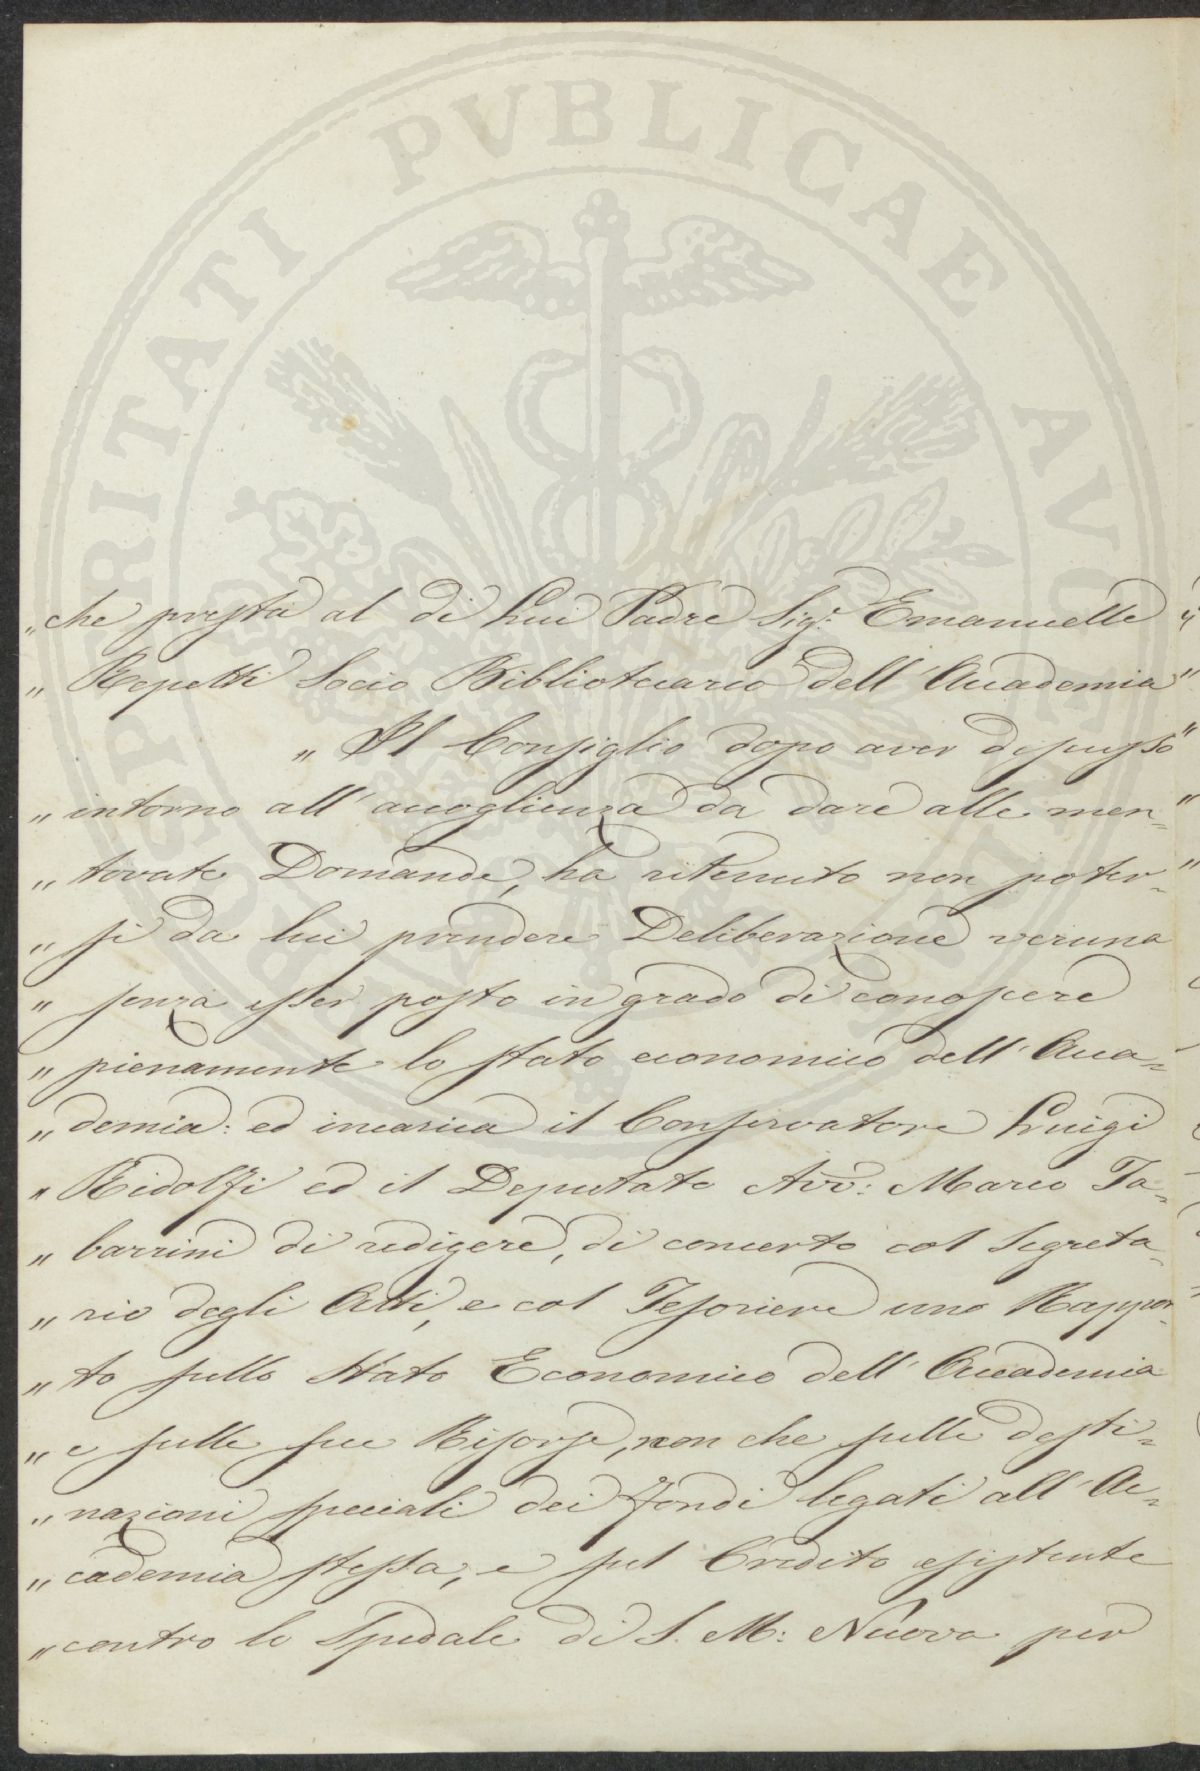 PROSPERITATI PVBLICAE AVGENDAE
„che presta al di Lui Padre Sig.r Emanuelle „
„ Repetti Socio Bibliotecario dell'Accademia "
„ Il Consiglio dopo aver discusso "
„ intorno all'accoglienza da dare alle men= "
„ tovate Domande, ha ritenuto non poter= "
„ si da lui prendere Deliberazione veruna
„ senza esser posto in grado di conoscere
„ pienamente lo stato economico dell'Acca=
„ demia: ed incarica il Conservatore Luigi
„ Ridolfi ed il Deputato Avv: Marco Ta=
„ barrini di redigere, di concerto col Segreta=
„ rio degli Atti, e col Tesoriere uno Rappor=
„ to sullo Stato Economico dell'Accademia
„ e sulle sue Risorse, non che sulle desti=
„ nazioni speciali dei fondi legati all'Ac=
„ cademia stessa, e sul Credito esistente
„ contro lo Spedale di S. M: Nuova per